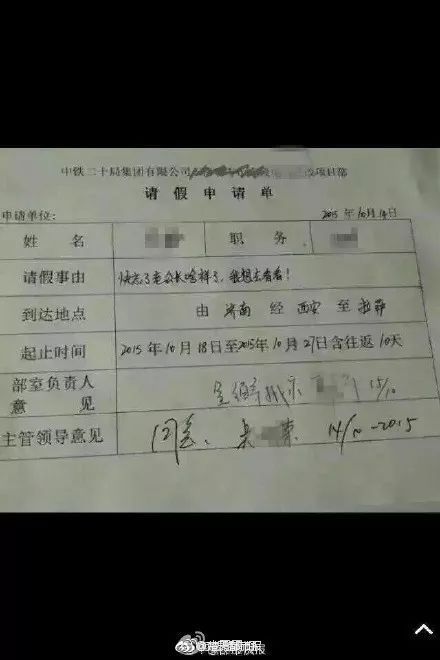 中铁二十局集团有限公司 项目部
请假申请单
申请单位: 2015年10月14日
姓名 职务
请假事由 快忘了老公长啥样了,我想去看看!
到达地点 由 济南 经 西安 至 拉萨
起止时间 2015年10月18日至2015年10月27日含往返10天
部室负责人意见 15/10
主管领导意见 同意. 14/10-2015